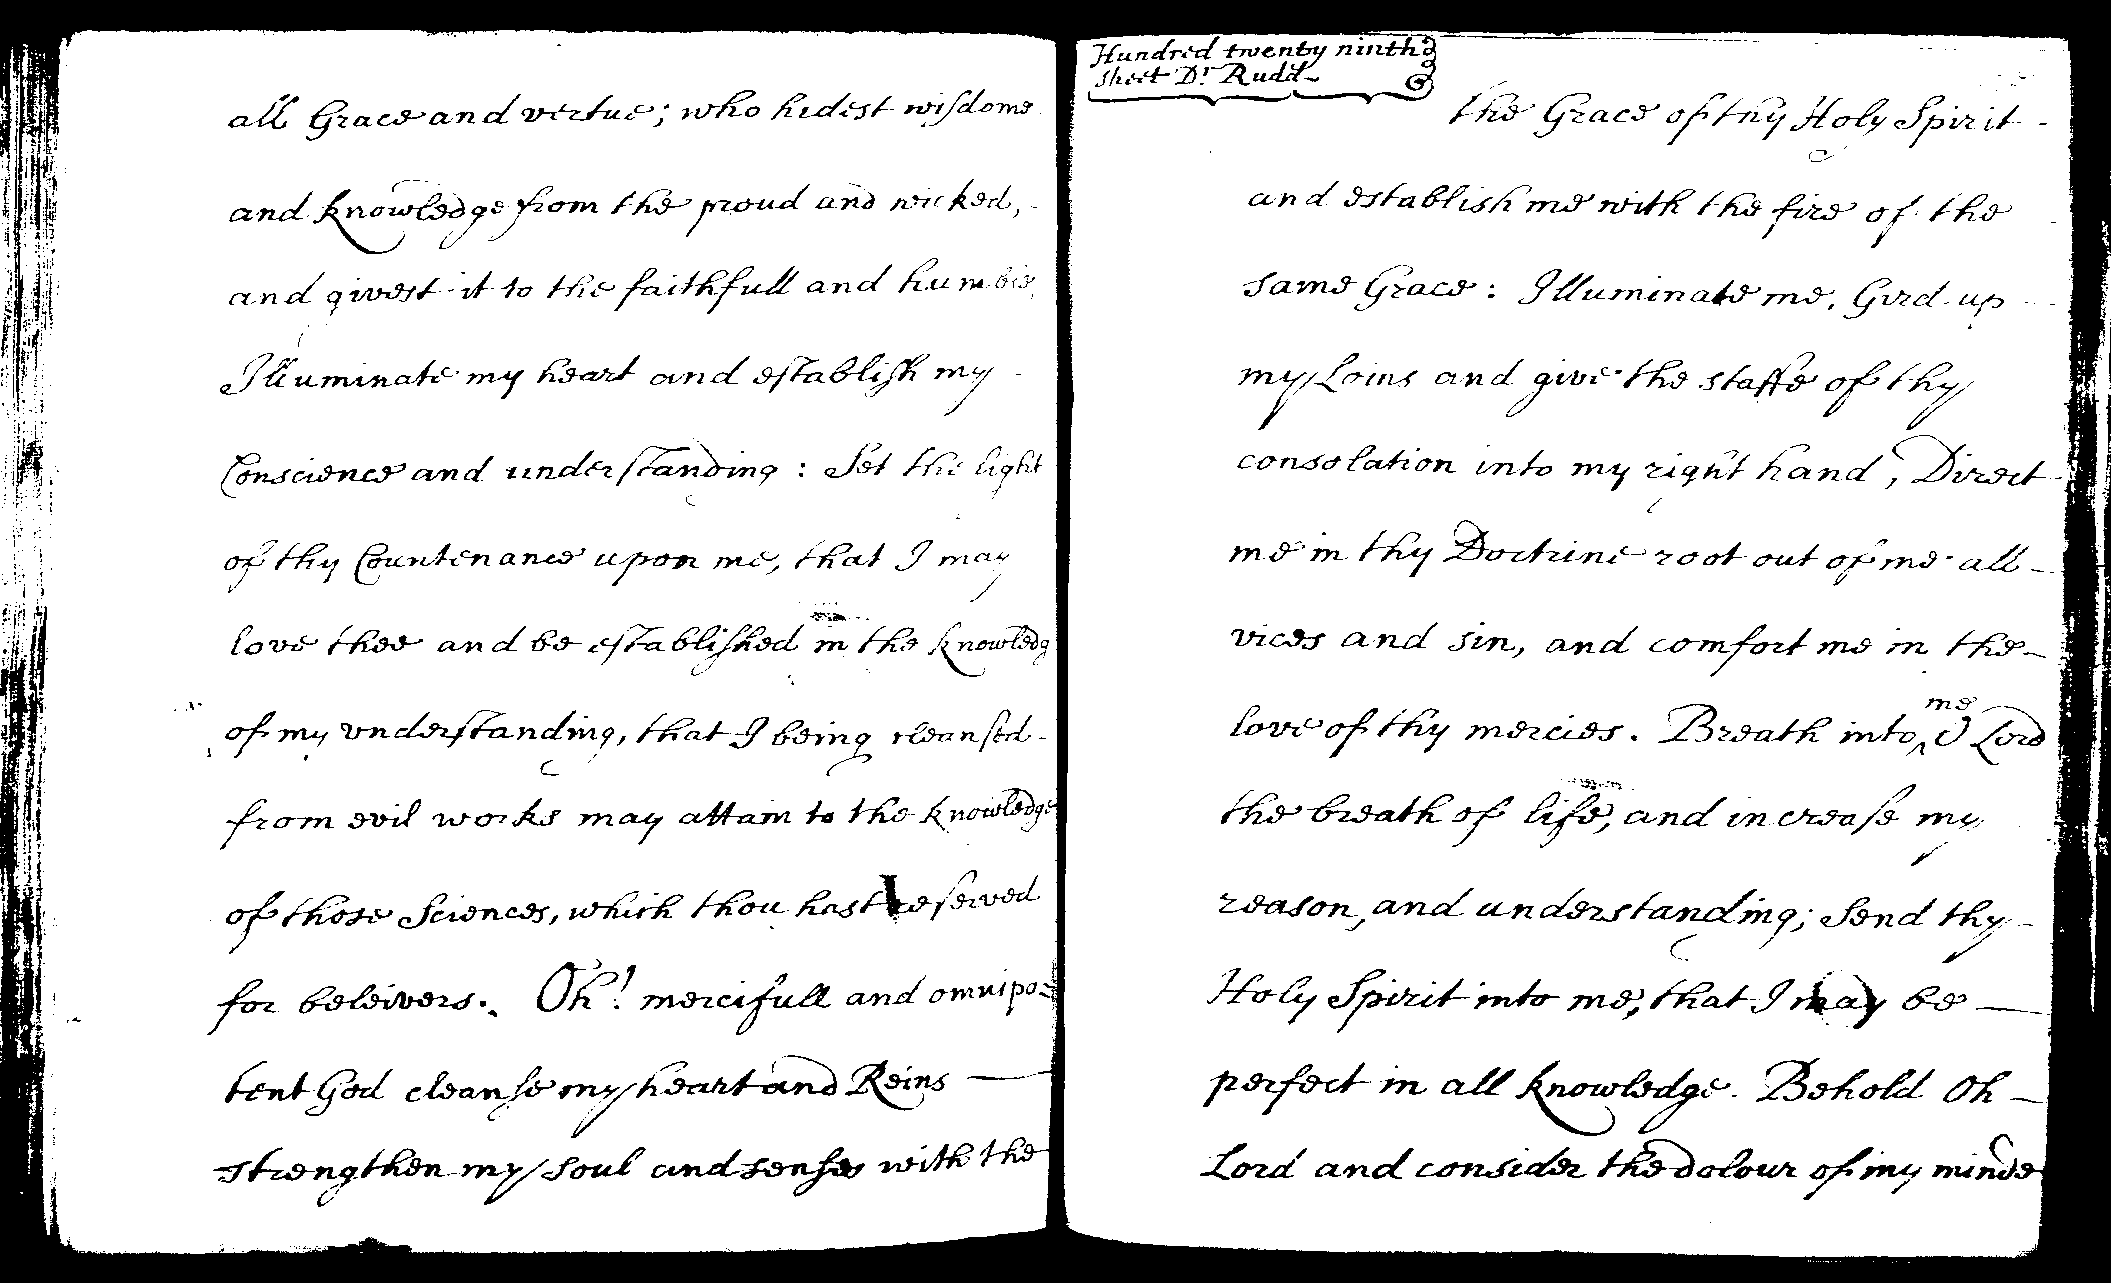 all Grace and vertue; who hidest wisdome
and knowledge from the proud and wicked,
and givest it to the faithfull and humble,
Illuminate my heart and establish my
Conscience and understanding: Set the light
of thy Countenance upon me, that I may
love thee and be established in the knowledg
of my vnderstanding, that I being cleansed
from evil works may attain to the knowledge
of those Sciences, which thou hast reserved
for beleivers. Oh! mercifull and omnipo=
tent God cleanse my heart and Reins
strengthen my soul and senses with the
Hundred twenty ninth
sheet Dr Rudd
the Grace of thy Holy Spirit
and establish me with the fire of the
same Grace: Illuminate me, Gird up
my Loins and give the staffe of thy
consolation into my right hand, Direct
me in thy Doctrine root out of me all
vices and sin, and comfort me in the
love of thy mercies. Breath into me O Lord
the breath of life, and increase my
reason, and understanding; Send thy
Holy Spirit into me, that I may be
perfect in all knowledge. Behold Oh
Lord and consider the dolour of my minde